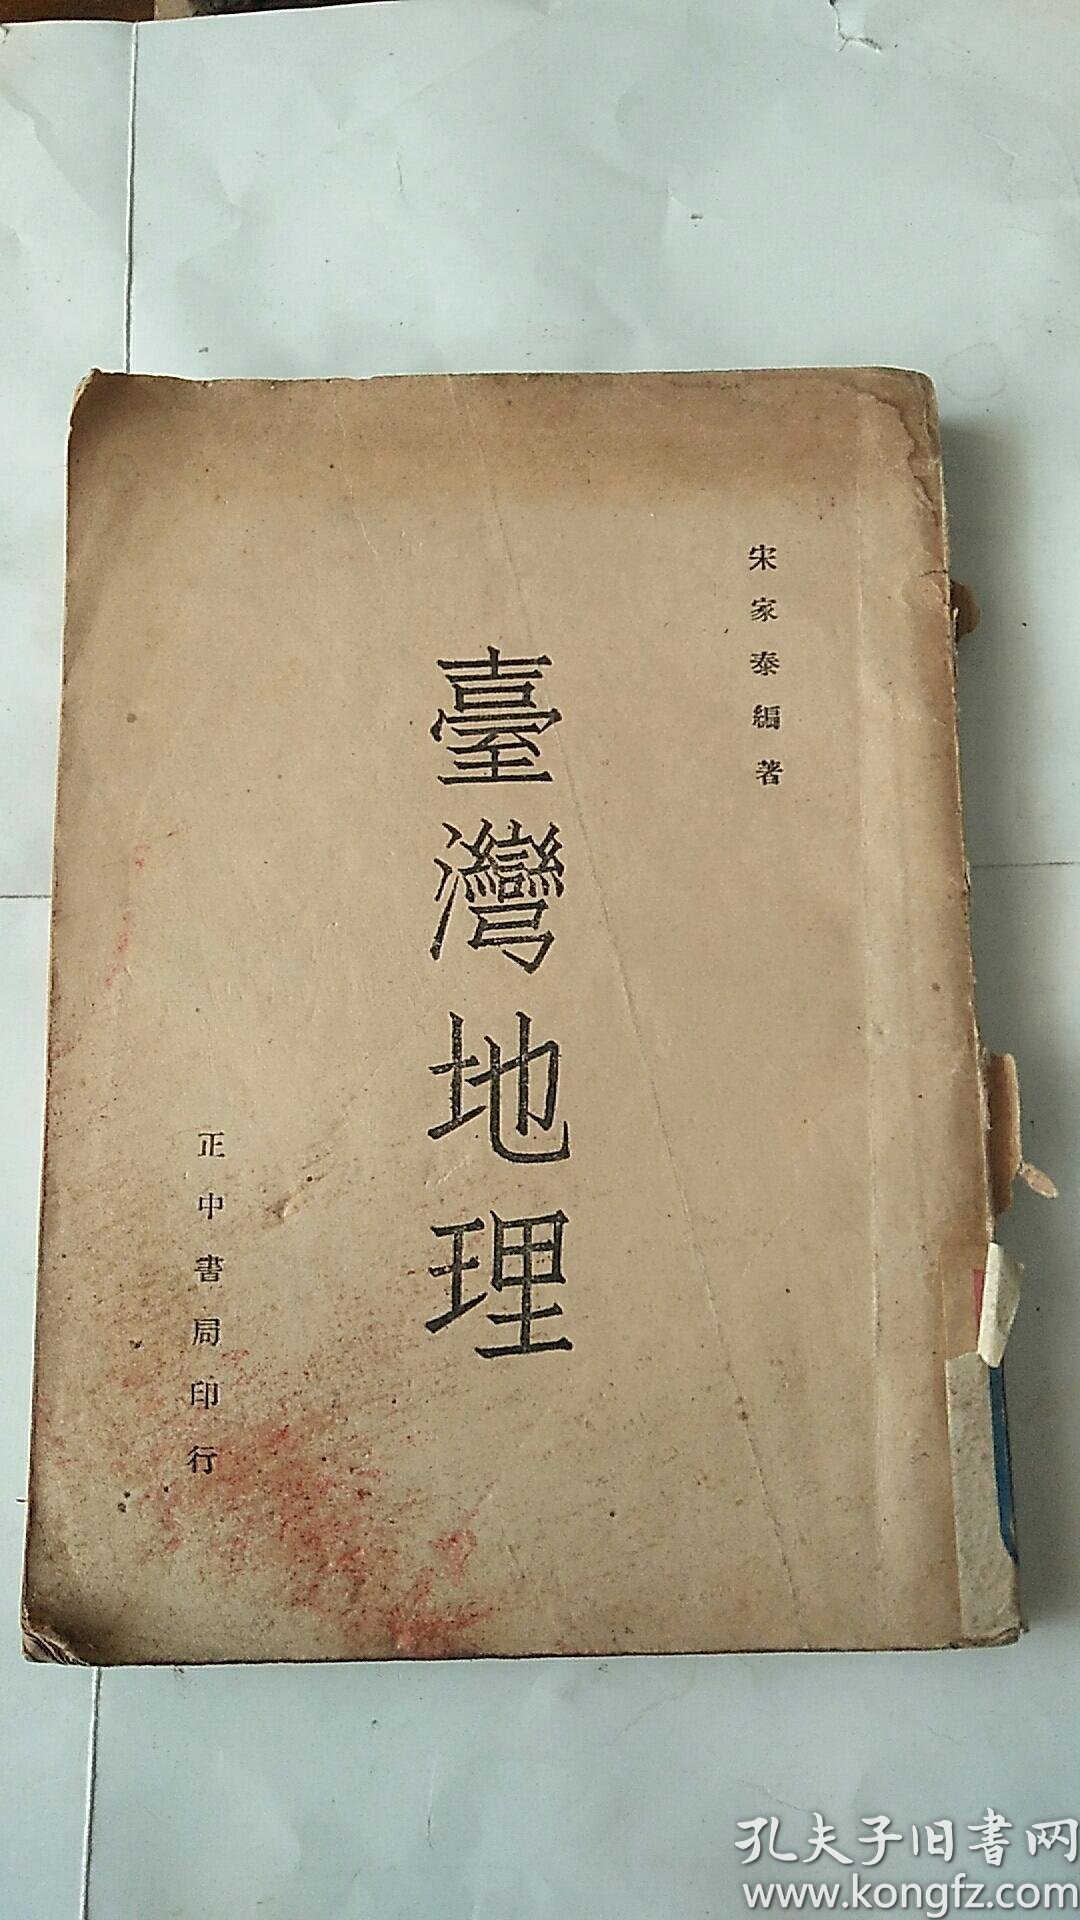 宋家泰編著
臺灣地理
正中書局印行
孔夫子旧書网
www.kongfz.com